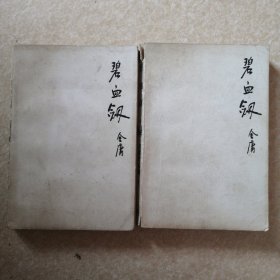 碧血剑
金庸
碧血剑
金庸